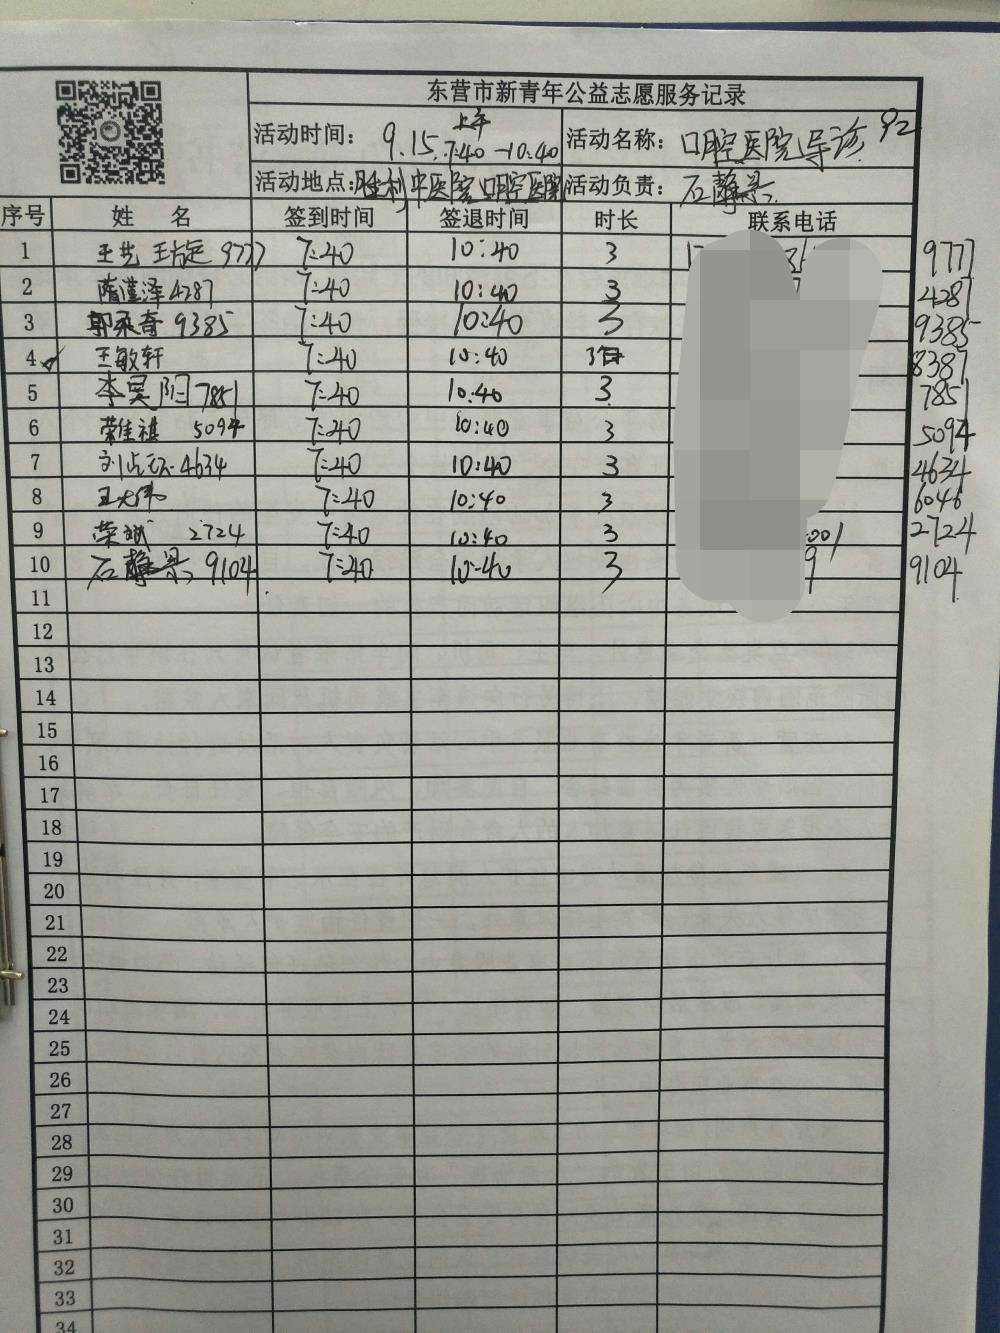 东营市新青年公益志愿服务记录
活动时间： 9.15. 上午 7:40-10:40 活动名称： 口腔医院导诊 92
活动地点： 胜利中医院口腔医院 活动负责： 石静
序号 姓 名 签到时间 签退时间 时长 联系电话
1 王艺 9777 7:40 10:40 3 9777
2 隋 泽 4287 7:40 10:40 3 4287
3 郭 奇 9385 7:40 10:40 3 9385
4 王敏轩 7:40 10:40 3 8387
5 李昊阳 7851 7:40 10:40 3 7851
6 荣佳祺 5094 7:40 10:40 3 5094
7 刘 4634 7:40 10:40 3 4634
8 王大伟 7:40 10:40 3 6046
9 荣斌 2724 7:40 10:40 3 2724
10 石静 9104 7:40 10:40 3 9 9104
11
12
13
14
15
16
17
18
19
20
21
22
23
24
25
26
27
28
29
30
31
32
33
34